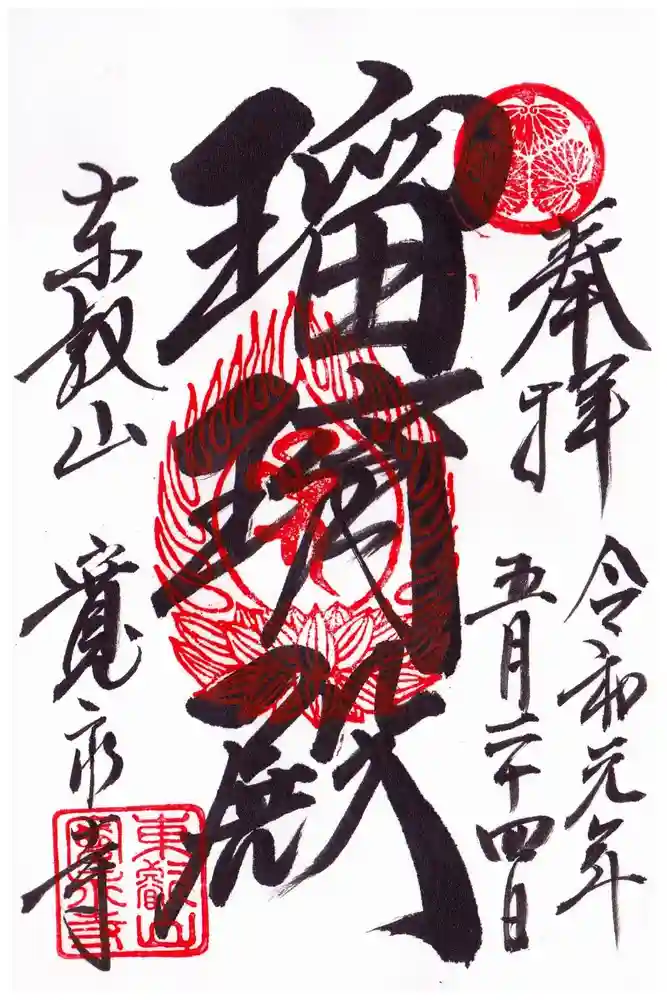 奉拝
令和元年
五月二十四日
瑠璃殿
東叡山
寛永寺
東叡山
寛永寺